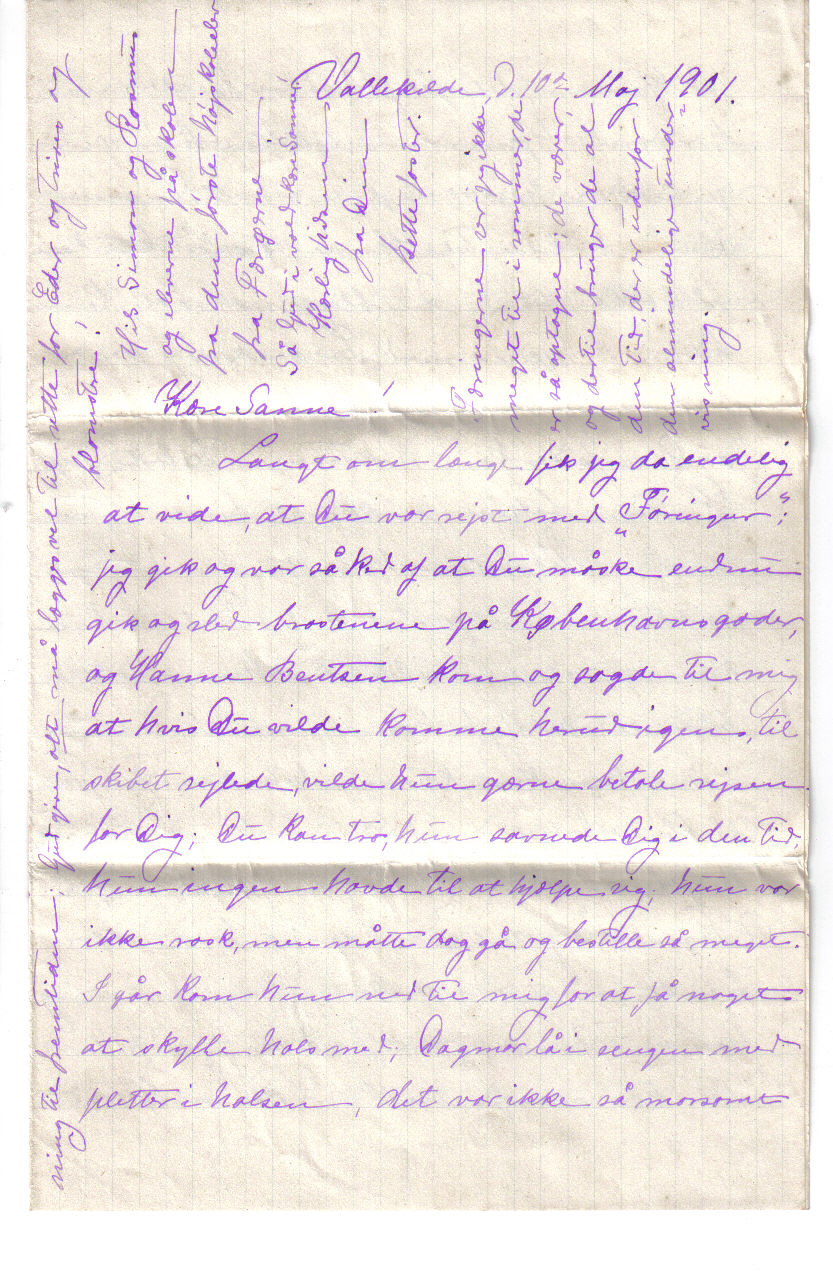 Vallekilde d. 10de Maj 1901.
Kære Sanne!
Langt om længe fik jeg da endelig
at vide, at Du var rejst med „Føringur“;
jeg gik og var så ked af at Du måske endnu
gik og sled brostenene på Københavnsgader,
og Hanne Bentsen kom og sagde til mig
at hvis Du vilde komme herud igen, til
skibet sejlede, vilde hun gærne betale rejsen
for Dig; Du kan tro, hun savnede Dig i den Tid,
hun ingen havde til at hjælpe sig; hun var
ikke rask, men måtte dog gå og bestille så meget.
I går kom hun ned til mig for at få noget
at skylle hals med; Dagmar lå i sengen med
pletter i halsen, det var ikke så morsomt
ning til fremtiden; Gud give, alt må lægges vel til rette for Eder og trives og
blomstre!
Hils Simon og Rasmus
og eleverne på skolen
fra den første højskoleelev
fra Færøerne
Så Gud i vold kære Sanne!
Kærlig hilsen
fra Din
Mette foster
Færingerne var jeg ikke
meget til i sommer, de
er så optagne, de værer,
og dertil bruger de al
den Tid, der er udenfor
den almindelige under-
visning.